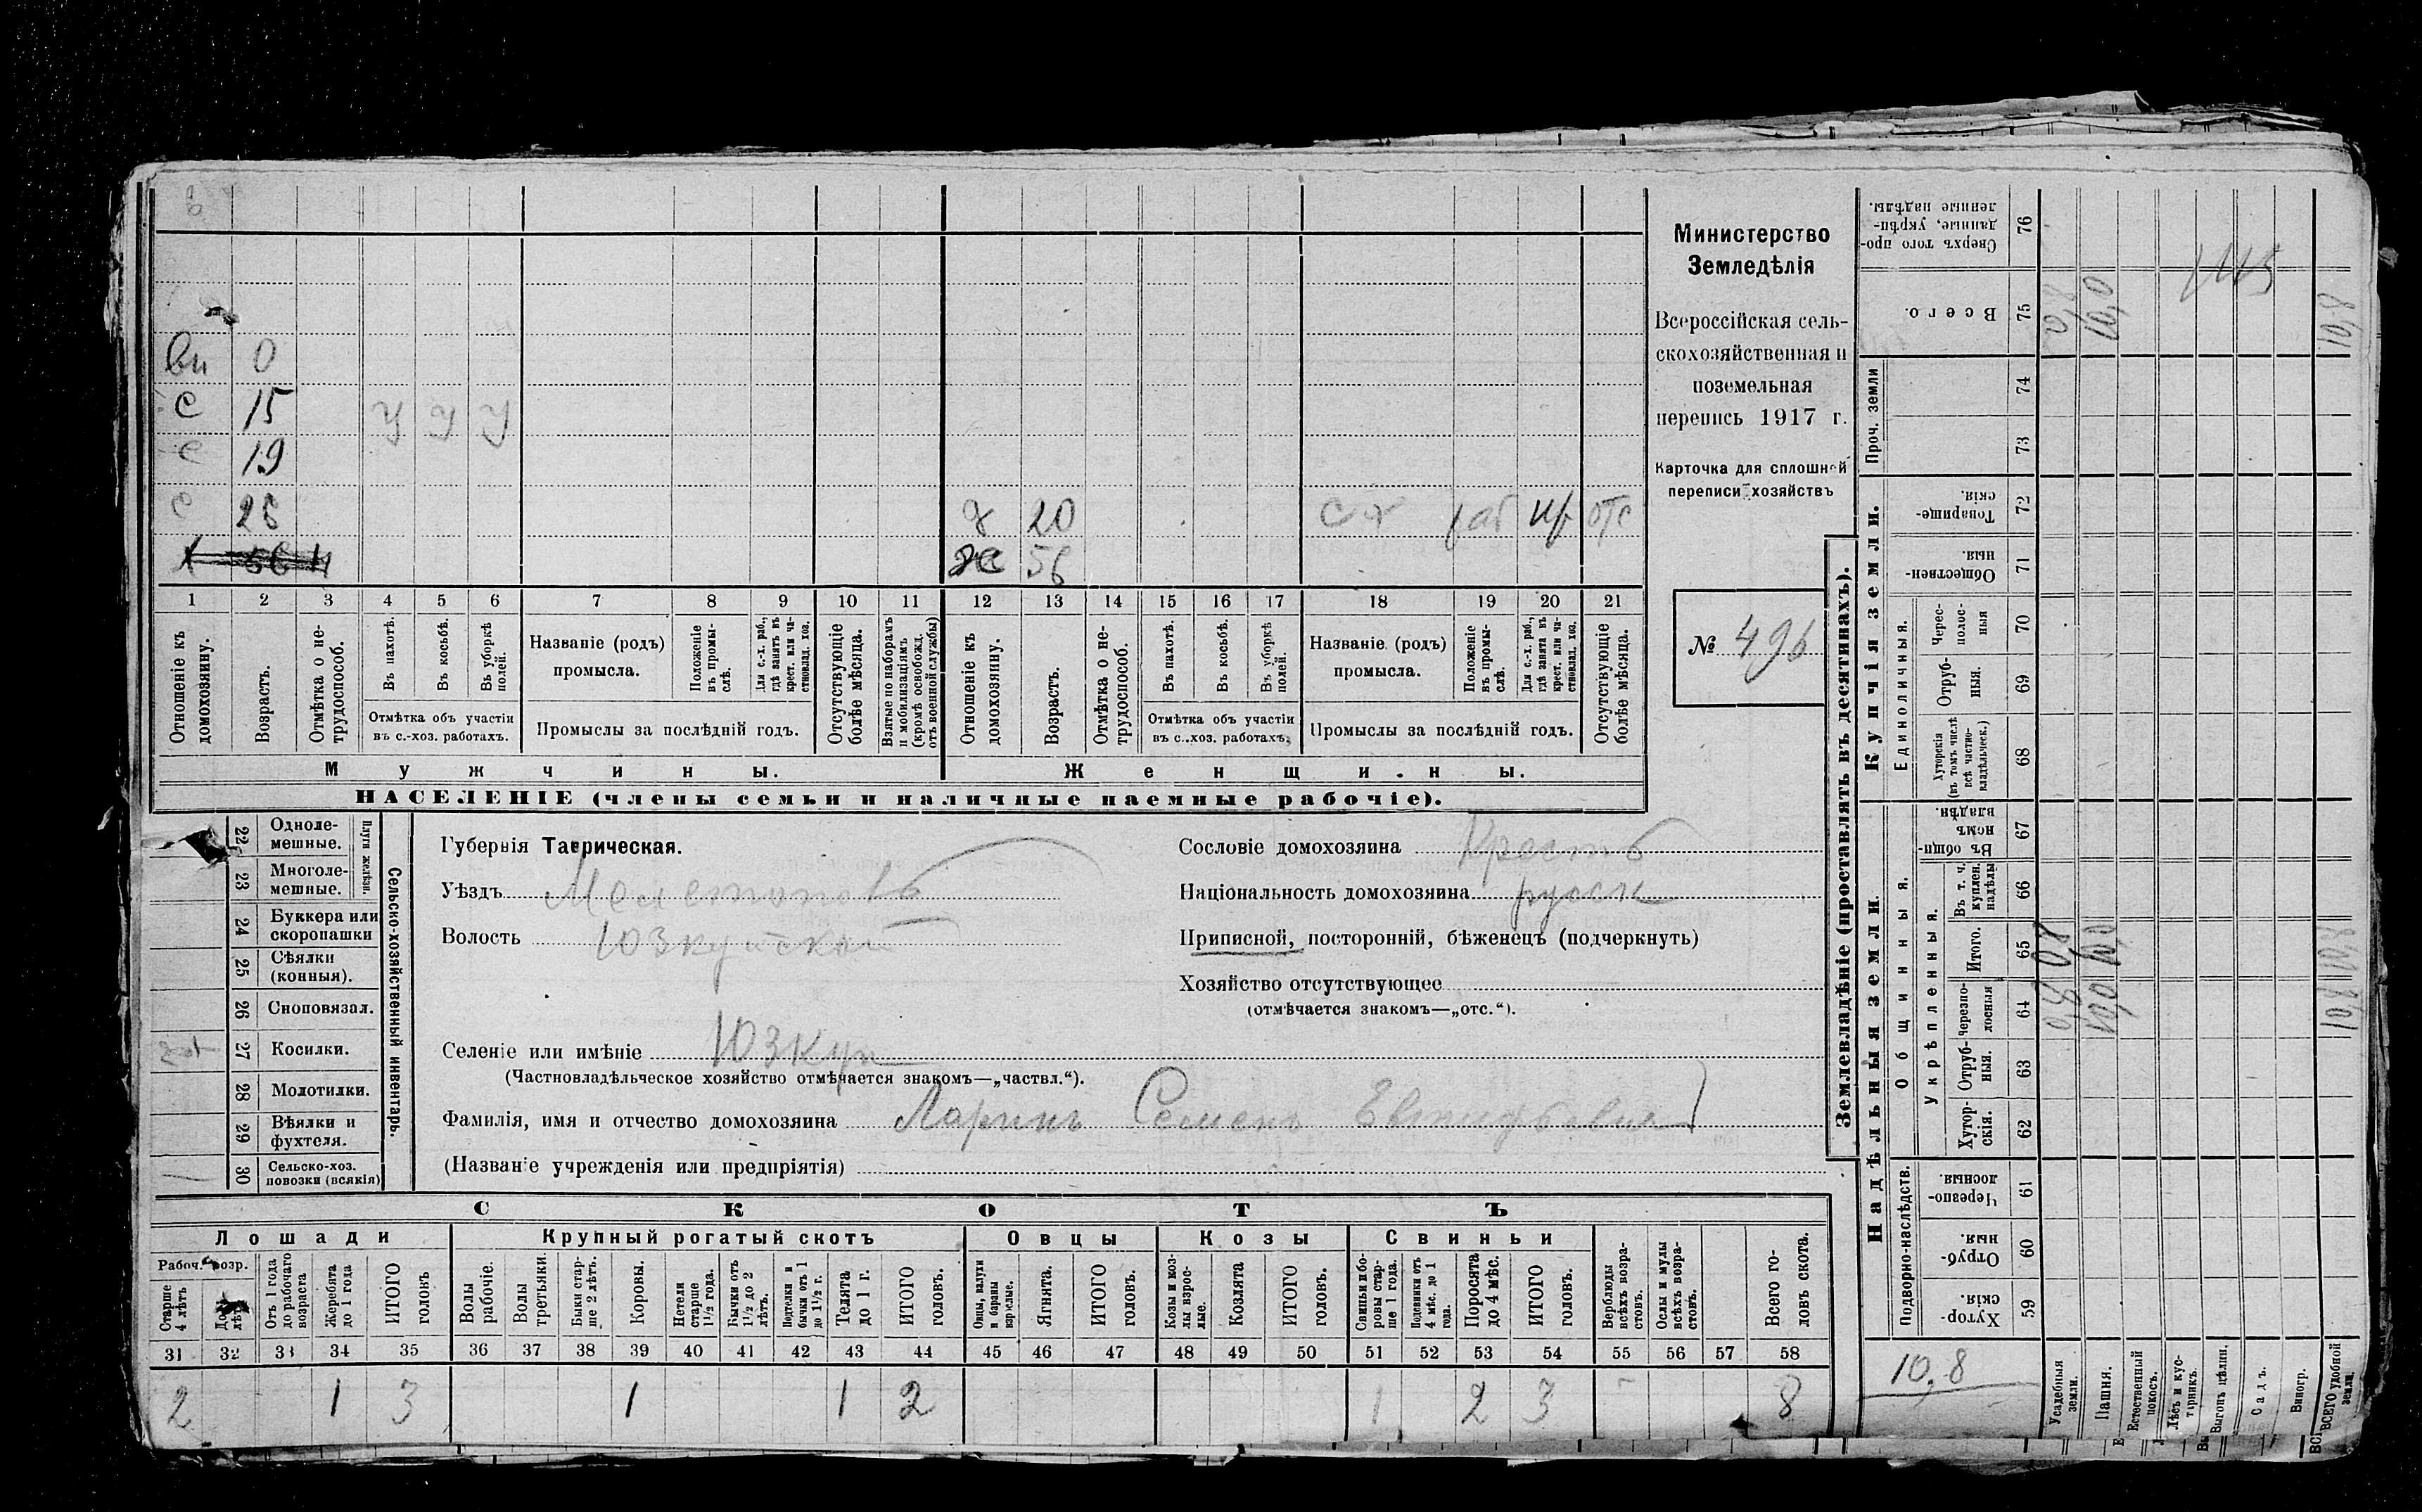 вн 0
с 15 у у у
с 19
с 26 д 20 с х раб чд отс
х 56 н ж 56
1 2 3 4 5 6 7 8 9 10 11 12 13 14 15 16 17 18 19 20 21
Отношеніе къ домохозяину.
Возрастъ.
Отмѣтка о нетрудоспособ.
Въ пахотѣ.
Въ косьбѣ.
Въ уборкѣ полей.
Отмѣтка объ участіи
въ с.-хоз. работахъ.
Названіе (родъ)
промысла.
Положеніе въ промыслѣ.
Для с.-х. раб., гдѣ занятъ въ крест. или частновлад. хоз.
Промыслы за послѣдній годъ.
Отсутствующіе болѣе мѣсяца.
Взятые по наборамъ и мобилизаціямъ (кромѣ освобожд. отъ военной службы)
Отношеніе къ домохозяину.
Возрастъ.
Отмѣтка о нетрудоспособ.
Въ пахотѣ.
Въ косьбѣ.
Въ уборкѣ полей.
Отмѣтка объ участіи
въ с.-хоз. работахъ.
Названіе (родъ)
промысла.
Положеніе въ промыслѣ.
Для с.-х. раб., гдѣ занята въ крест. или частновлад. хоз.
Промыслы за послѣдній годъ.
Отсутствующіе болѣе мѣсяца.
Мужчины. Женщины.
НАСЕЛЕНІЕ (члены семьи и наличные наемные рабочіе).
Министерство
Земледѣлія
Всероссійская сель-
скохозяйственная и
поземельная
перепись 1917 г.
Карточка для сплошной
переписи хозяйствъ
№ 496
Сельско-хозяйственный инвентарь.
Плуги желѣзн.
22 Одноле-
мешные.
23 Многоле-
мешные.
24 Буккера или
скоропашки
25 Сѣялки
(конныя).
26 Сноповязал.
27 Косилки.
28 Молотилки.
29 Вѣялки и
фухтеля.
30 Сельско-хоз.
повозки (всякія)
1
Губернія Таврическая.
Уѣздъ Мелитополь
Волость Юзкуйской
Селеніе или имѣніе Юзкуи
(Частновладѣльческое хозяйство отмѣчается знакомъ—„частвл.“).
Фамилія, имя и отчество домохозяина Ларинъ Семенъ
(Названіе учрежденія или предпріятія)
Сословіе домохозяина Крестъ
Національность домохозяина русск
Приписной, посторонній, бѣженецъ (подчеркнуть)
Хозяйство отсутствующее
(отмѣчается знакомъ—„отс.“).
СКОТЪ
Лошади Крупный рогатый скотъ Овцы Козы Свиньи
Рабоч. возр.
Старше 4 лѣтъ
До 4 лѣтъ
Отъ 1 года до рабочаго возраста
Жеребята до 1 года
ИТОГО головъ
Волы рабочіе.
Волы третьяки.
Быки старше 2 лѣтъ.
Коровы.
Нетели старше 1½ года.
Бычки отъ 1½ до 2 лѣтъ.
Подтелки и бычки отъ 1 до 1½ г.
Телята до 1 г.
ИТОГО головъ.
Овцы, валухи и бараны взрослые.
Ягнята.
ИТОГО головъ.
Козы и козлы взрослые.
Козлята
ИТОГО головъ.
Свиньи и боровы старше 1 года.
Подсвинки отъ 4 мѣс. до 1 года.
Поросята до 4 мѣс.
ИТОГО головъ.
Верблюды всѣхъ возрастовъ.
Ослы и мулы всѣхъ возрастовъ.
Всего головъ скота.
31 32 33 34 35 36 37 38 39 40 41 42 43 44 45 46 47 48 49 50 51 52 53 54 55 56 57 58
2 1 3 1 1 2 1 2 3 8
Землевладѣніе (проставлять въ десятинахъ).
Купчія земли.
Надѣльныя земли.
Сверхъ того проданные, укрѣпленные надѣлы. 76
Всего. 75 0,8 10,0 10,8
Проч. земли 74
73
Товарищескія. 72
Общественныя. 71
Единоличныя.
Чересполосныя 70
Отрубныя. 69
Хуторскія (въ томъ числѣ всѣ частновладѣльческ.) 68
Общинныя.
Въ общинномъ владѣн. 67
Укрѣпленныя.
Въ т. ч. куплен. надѣлы 66
Итого. 65 0,8 10,0 10,8
Черезполосныя 64 0,8 10,0 10,8
Отрубныя. 63
Хуторскія. 62
Подворно-наслѣдств.
Черезполосныя. 61
Отрубныя. 60
Хуторскія. 59
10,8
Усадебныя земли.
Пашня.
Естественный покосъ.
Лѣсъ и кустарникъ.
Выгонъ цѣлин.
Садъ.
Виногр.
ВСЕГО удобной земли.